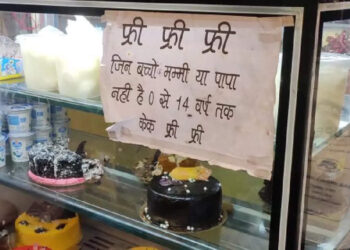 फ्री फ्री फ्री
जिन बच्चो मम्मी या पापा
नहीं है 0 से 14 वर्ष तक
केक फ्री फ्री